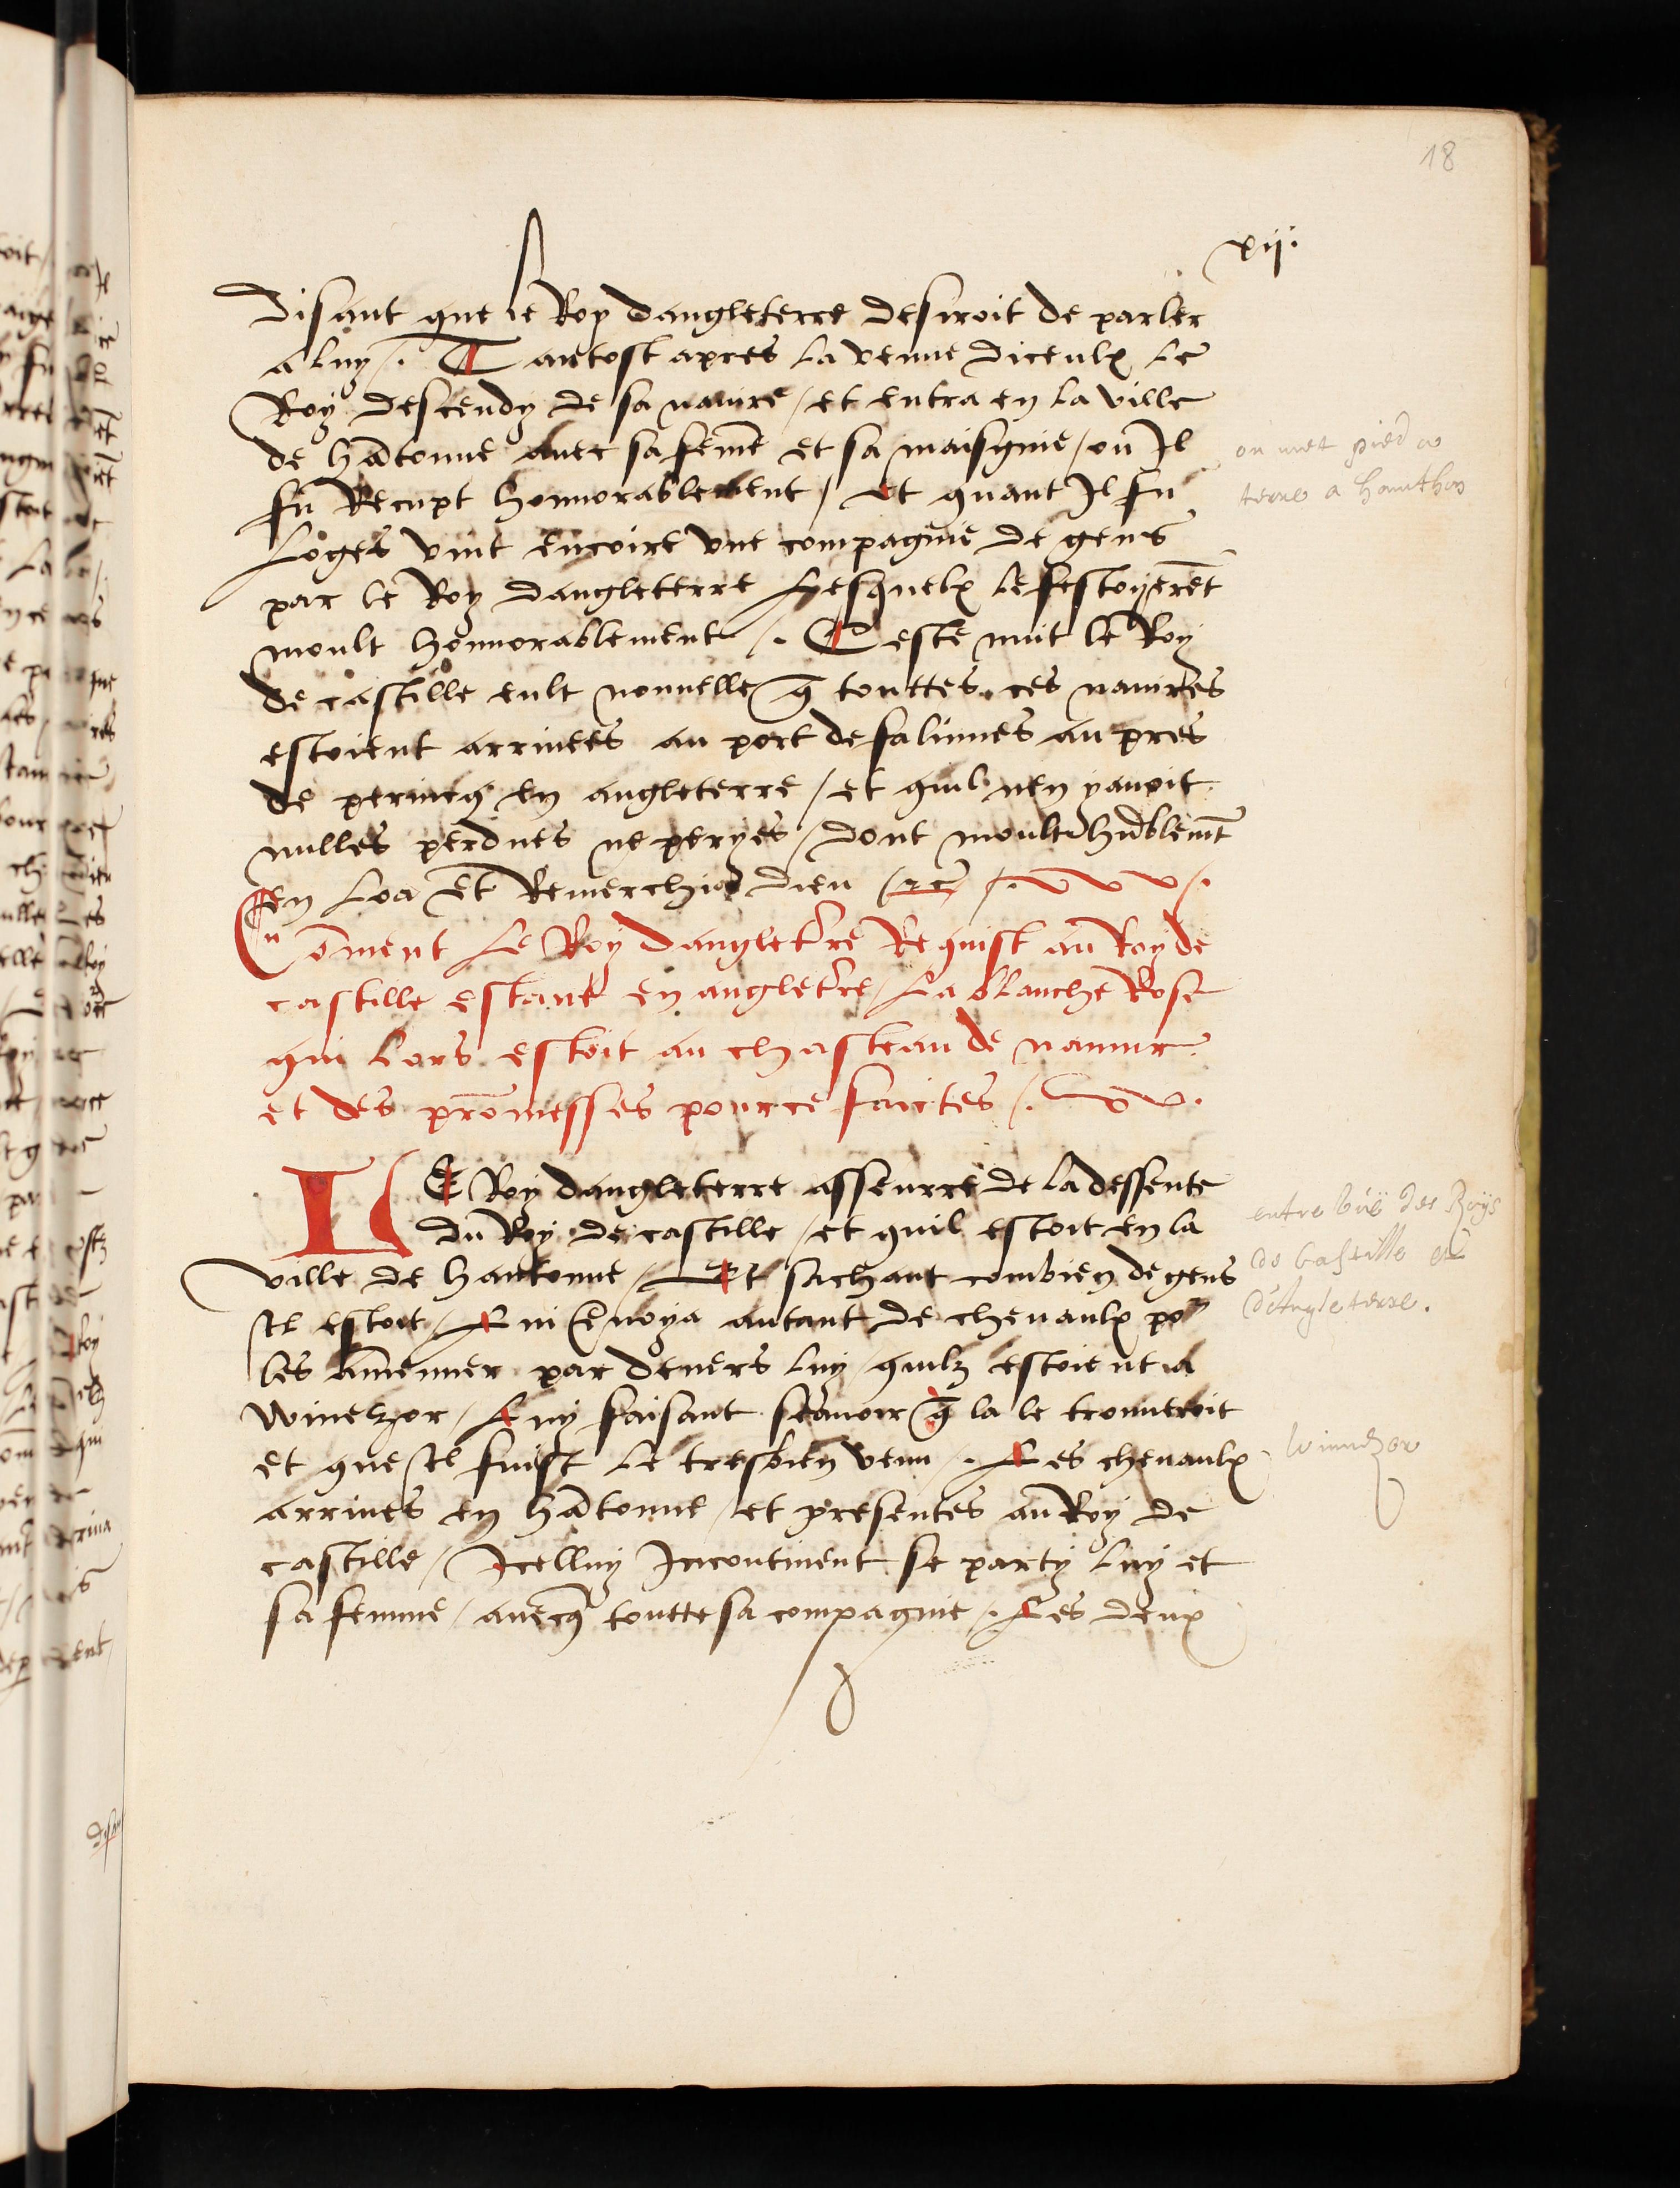 18
xij.
disant que le Roy dangleterre desiroit de parler
a luy /. Tantost apres la venue diceulx le
Roy descendy de sa navire / et entra en la ville
de hātonne avec sa feme͂ et sa maisgnie / ou Il
fu Recupt honnorablement / Et quant Il fu
Loges vint encoire une compagnie de gens
par le Roy dangleterre Lesquelx le festoyere͂t
moult honnorablement /. Ceste nuit le Roy
de castille eult nouvelle q̄ touttes ces navires
estoient arrivees au port de falinnes aupres
de perincq en angleterre / et quil nen yavoit
nulles perdues ne peryes / dont moult hūblemt̄
en Loa et Remerchia dieu /⁊c̄ /.
Cōment Le Roy dangletʳre Requist au Roy de
castille estant en angletʳre / La blanche Rose
qui lors estoit au chasteau de namur
et des promesses pource faictes /.
LE Roy dangleterre asseurre de la dessente
du Roy de castille / et quil estoit en la
ville de hantonne / Et sachant combien de gens
Il estoit / Lui ēvoya autant de chevaulx poʳ
les āmenner par devers luy / quilz estoient a
Winelzor / Luy faisant scavoir q̄ la le trouveroit
et que Il fuist le tresbien venu /. Les chevaulx
arrives en hātonne / et presentes au Roy de
castille / Icelluy Incontinent se party luy et
sa femme / avecq̄ toutte sa compagnie /. Les deux
on met pied a
terre a hamthon
entre būe des Roys
de Castille et
d'Angleterre.
Winndzor